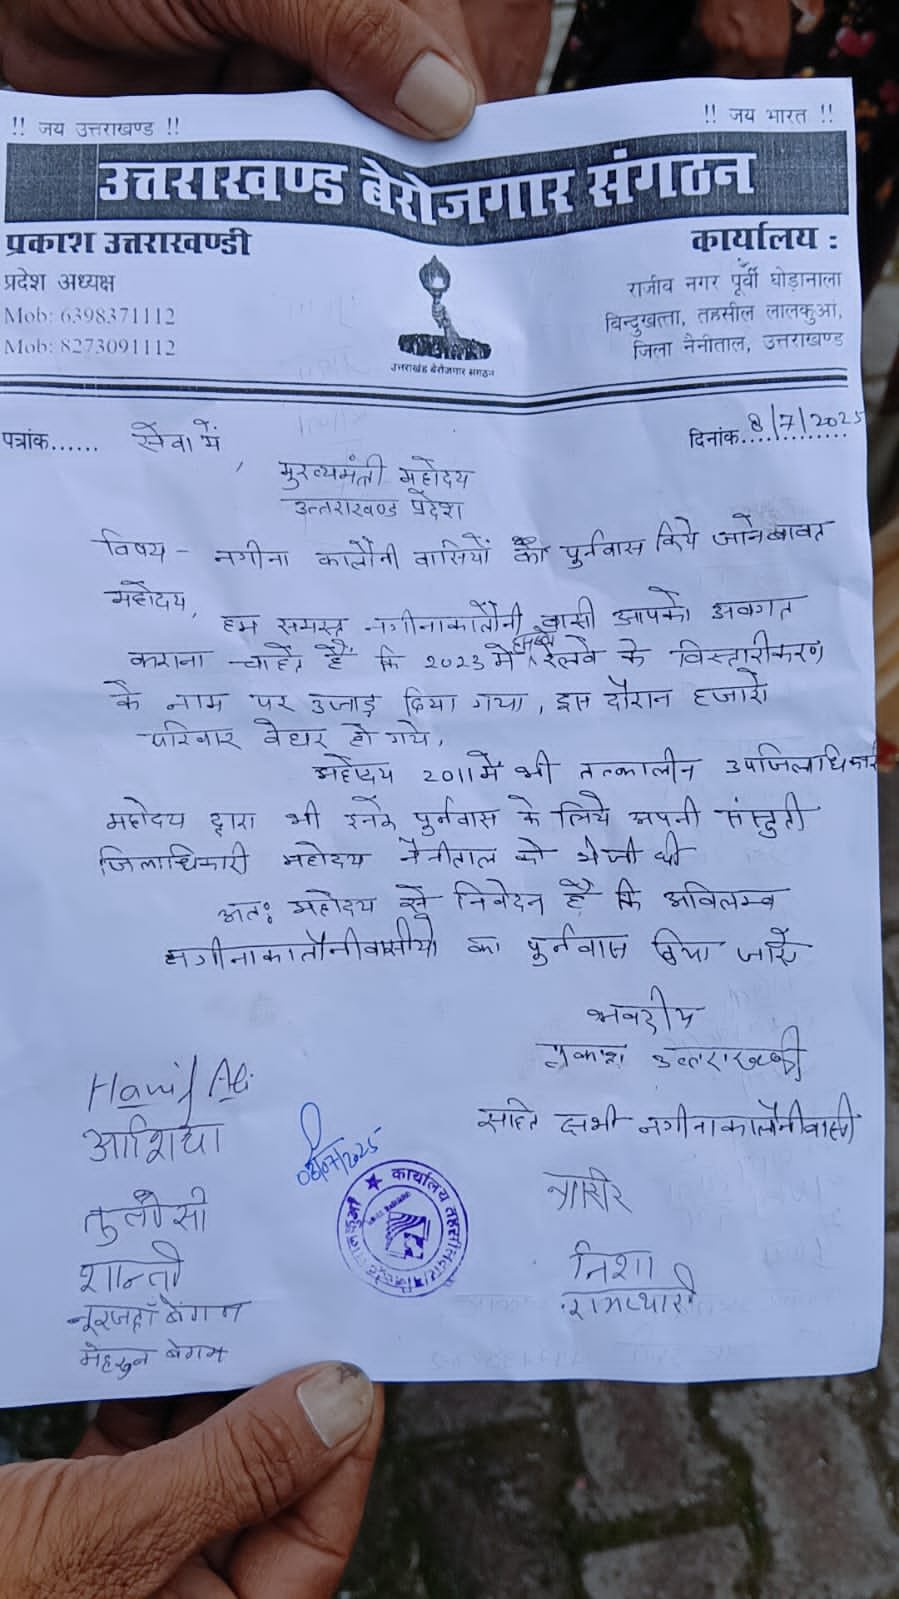 !! जय उत्तराखण्ड !!
!! जय भारत !!
उत्तराखण्ड बेरोजगार संगठन
प्रकाश उत्तराखण्डी
प्रदेश अध्यक्ष
Mob: 6398371112
Mob: 8273091112
उत्तराखंड बेरोजगार संगठन
कार्यालय :
राजीव नगर पूर्वी घोड़ानाला
बिन्दुखत्ता, तहसील लालकुआं,
जिला नैनीताल, उत्तराखण्ड
पत्रांक...... सेवा में,
दिनांक 8/7/2025
मुख्यमंत्री महोदय
उत्तराखण्ड प्रदेश
विषय - नगीना कालौनी वासियों का पुर्नवास किये जाने बावत
महोदय,
हम समस्त नगीनाकालौनी वासी आपको अवगत
कराना चाहते हैं कि 2023 में हमको रेलवे के विस्तारीकरण
के नाम पर उजाड़ दिया गया, इस दौरान हजारो
परिवार बेघर हो गये,
महोदय 2011 में भी तत्कालीन उपजिलाधिकारी
महोदय द्वारा भी इनके पुर्नवास के लिये अपनी संस्तुती
जिलाधिकारी महोदय नैनीताल को भेजी थी
अतः महोदय से निवेदन है कि अविलम्ब
नगीनाकालौनीवासीयो का पुर्नवास किया जाऐ
भवदीय
प्रकाश उत्तराखण्डी
सहित सभी नगीनाकालौनीवासी
Hanif Ali
आशिया
08/07/2025
तुलौसी
शान्ती
नूरजहाँ बेगम
बेगम
निशा
रामप्यारी
कार्यालय तहसीलदार